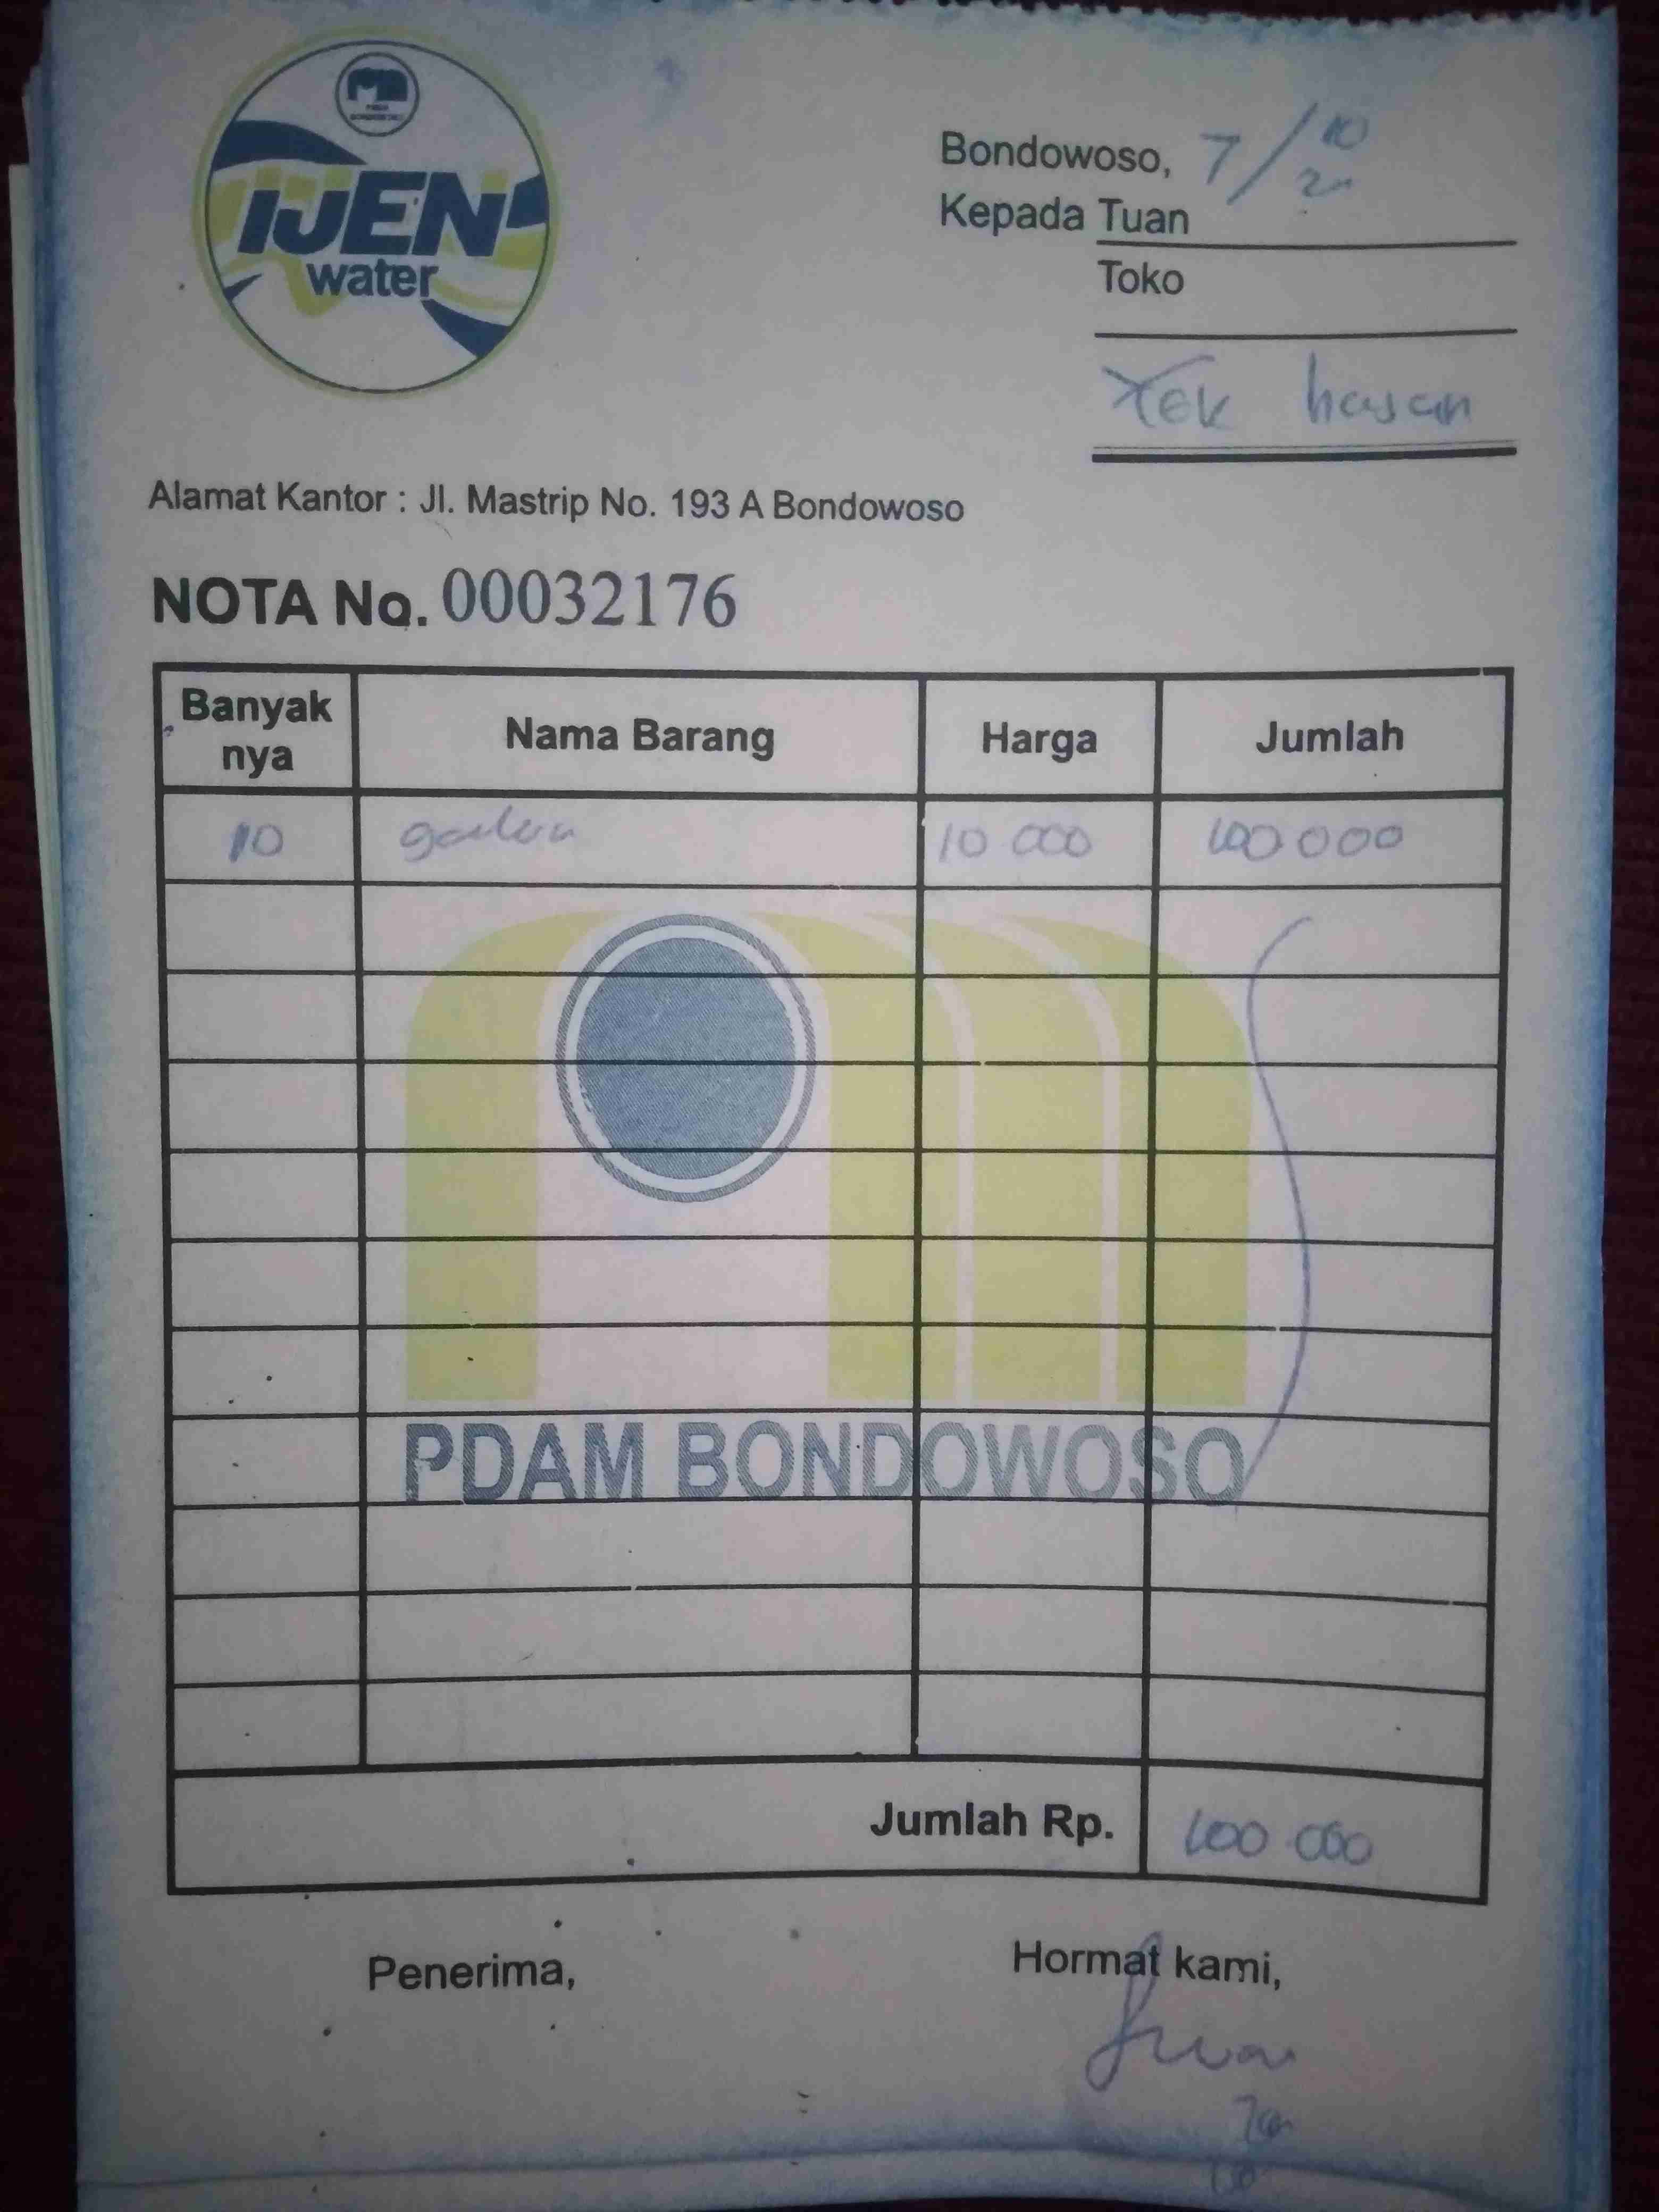 IJEN
water
Bondowoso, 7/10
Kepada Tuan
Toko
hasan
Alamat Kantor : Jl. Mastrip No. 193 A Bondowoso
NOTA No. 00032176
Banyak nya Nama Barang Harga Jumlah
10 galon 10 000 100 000
PDAM BONDOWOSO
Jumlah Rp. 100 000
Penerima, Hormat kami,